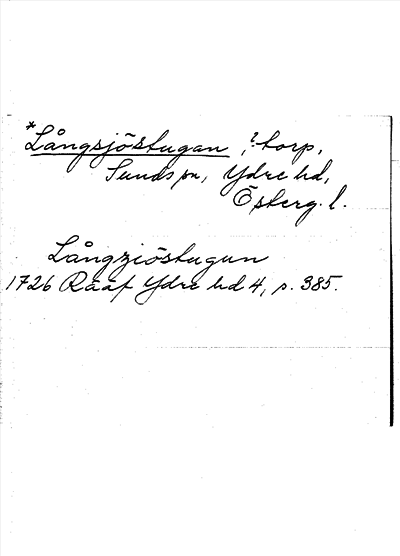 *Långsjöstugan, ? torp,
Sunds sn, Ydre hd,
Österg. l.
Långziöstugun
1726 Rääf Ydre hd 4, s. 385.